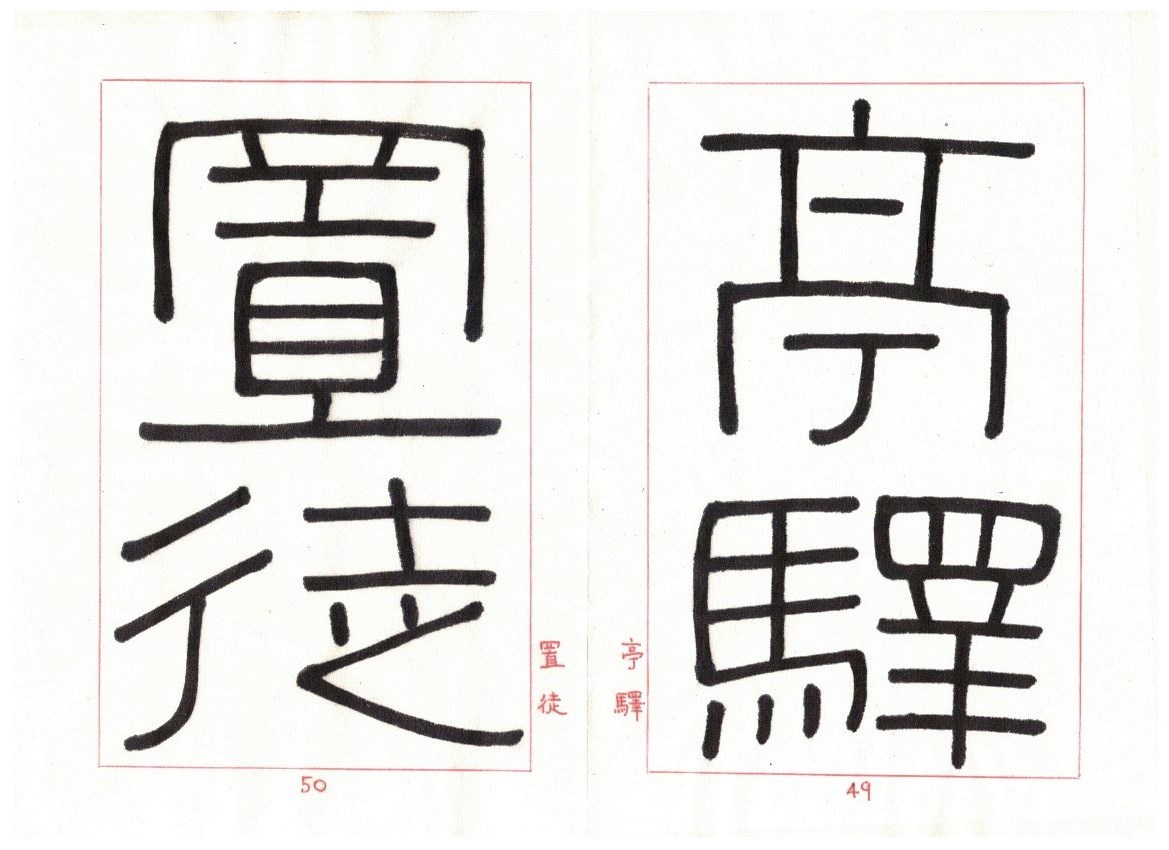 亭驛
亭驛
49
置徒
置徒
50